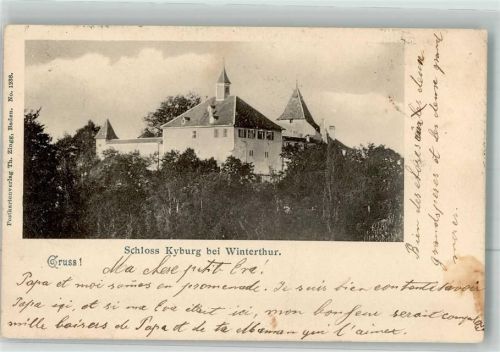 Postkartenverlag Th. Zingg, Baden. No. 1338.
Schloss Kyburg bei Winterthur.
Gruss!
Ma chère petit Eva!
Papa et moi somes en promenade. Je suis bien contante d'avoir
Papa ici, et si ma Eva était ici, mon bonheur serait complet
mille baisers de Papa et de ta Maman qui t'aimer.
Bien des choses aux deux
grandspères et les deux grand
mères.